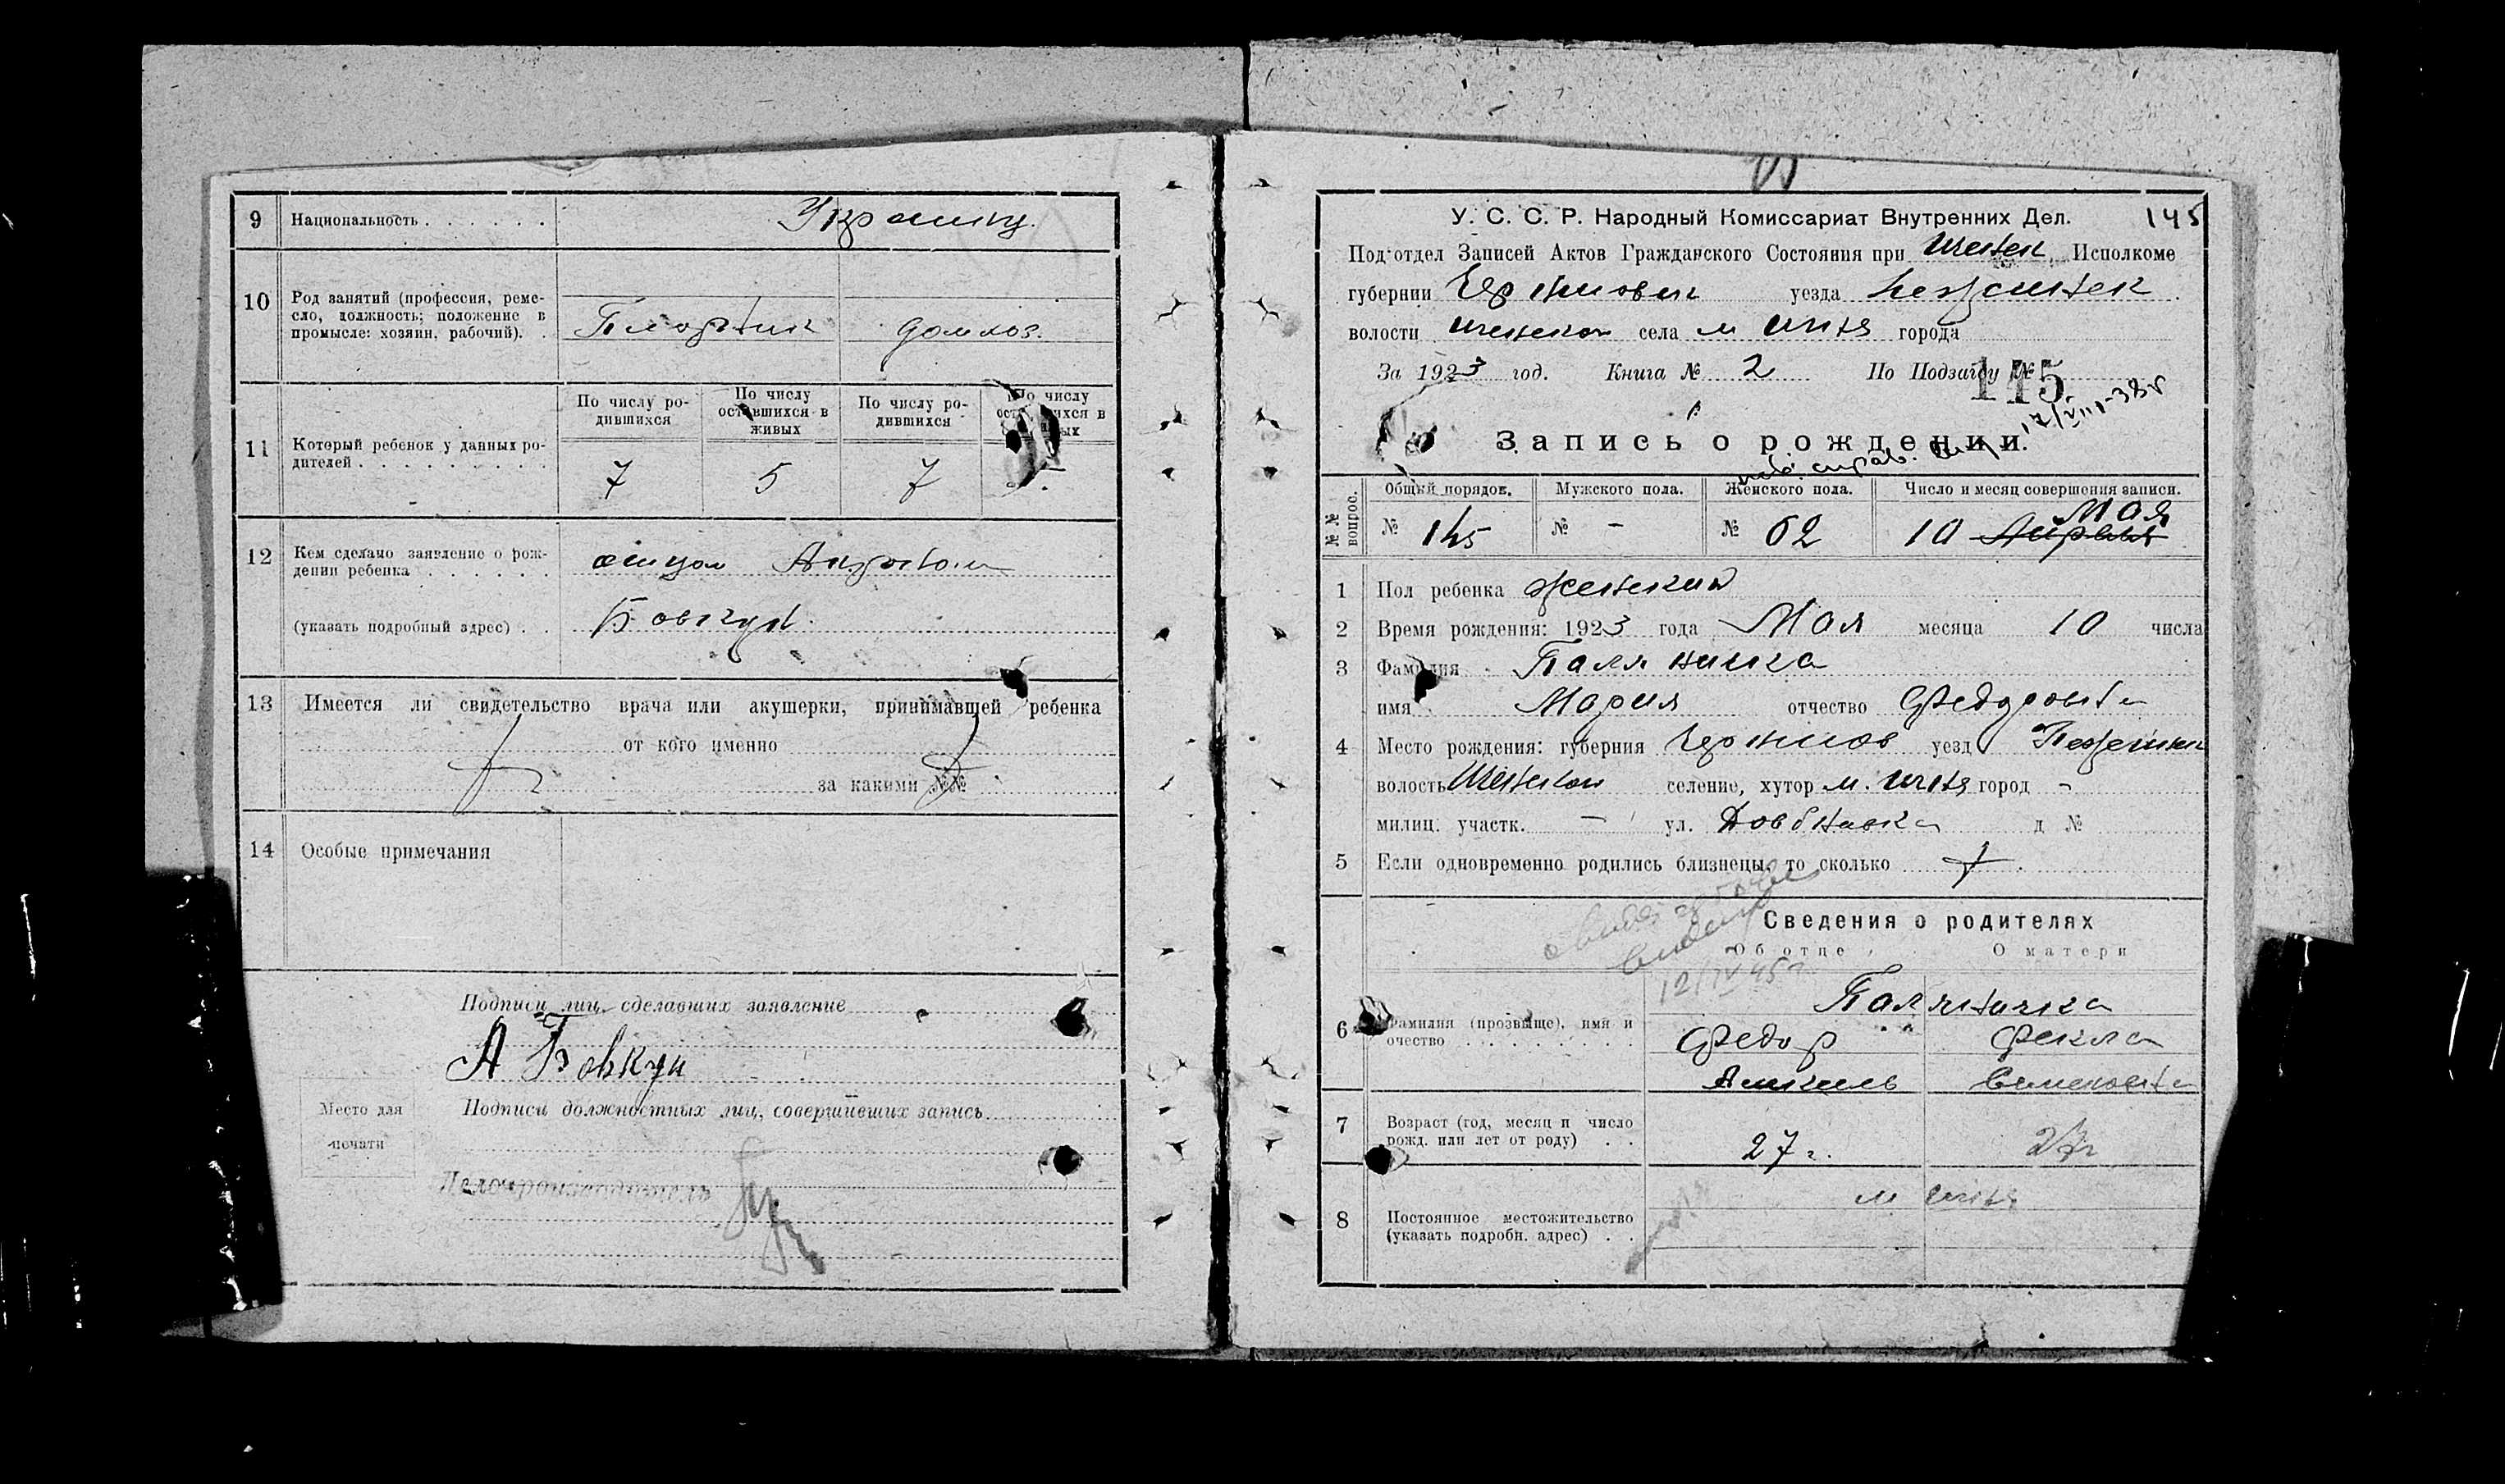 9 Национальность Украинц.
10 Род занятий (профессия, реме-
сло, должность; положение в
промысле: хозяин, рабочий).
Плотник домхоз.
11 Который ребенок у данных ро-
дителей
По числу ро-
дившихся
По числу
оставшихся в
живых
По числу ро-
дившихся
По числу
7 5 7
12 Кем сделано заявление о рож-
дении ребенка отцом
(указать подробный адрес) Бовкун.
13 Имеется ли свидетельство врача или акушерки, принимавшей ребенка
от кого именно
за какими №№
14 Особые примечания
Подписи лиц, сделавших заявление
А Бовкун
Место для
печати
Подписи должностных лиц, совершивших запись
Делопроизводитель
У. С. С. Р. Народный Комиссариат Внутренних Дел. 145
Под'отдел Записей Актов Гражданского Состояния при Ичнянск. Исполкоме
губернии Чернигов уезда
волости Ичнянской села м Ичня города
За 1923 год. Книга № 2 По Подзагсу №
145
17/VIII-38г
Запись о рождении.
№№ вопрос.
Общий порядов. Мужского пола. Женского пола. Число и месяц совершения записи.
№ 145 № - № 62 10 Апреля Мая
1 Пол ребенка женский
2 Время рождения: 1923 года Мая месяца 10 числа
3 Фамилия Паляничка
имя Мария отчество Федоровна
4 Место рождения: губерния Чернигов уезд
волость Ичнянской селение, хутор м. Ичня город -
милиц. участк. - ул. Довбнавка д №
5 Если одновременно родились близнецы, то сколько
12/IV 45г
Сведения о родителях
Об отце О матери
6 Фамилия (прозвище), имя и
очество
Паляничка
Федор Фекла
7 Возраст (год, месяц и число
рожд. или лет от роду)
27 г. 27г
8 Постоянное местожительство
(указать подробн. адрес)
м Ичня